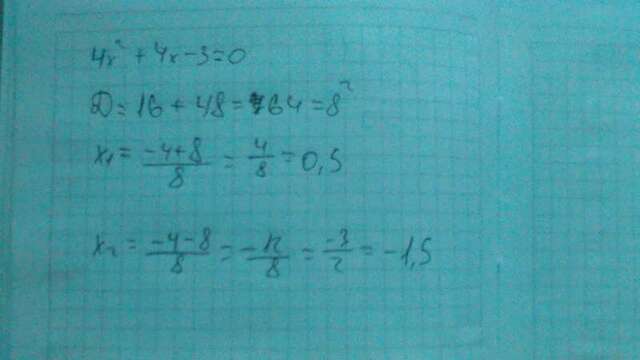 4x² + 4x - 3 = 0
D = 16 + 48 = 64 = 8²
x₁ = (-4+8)/8 = 4/8 = 0,5
x₂ = (-4-8)/8 = -12/8 = -3/2 = -1,5